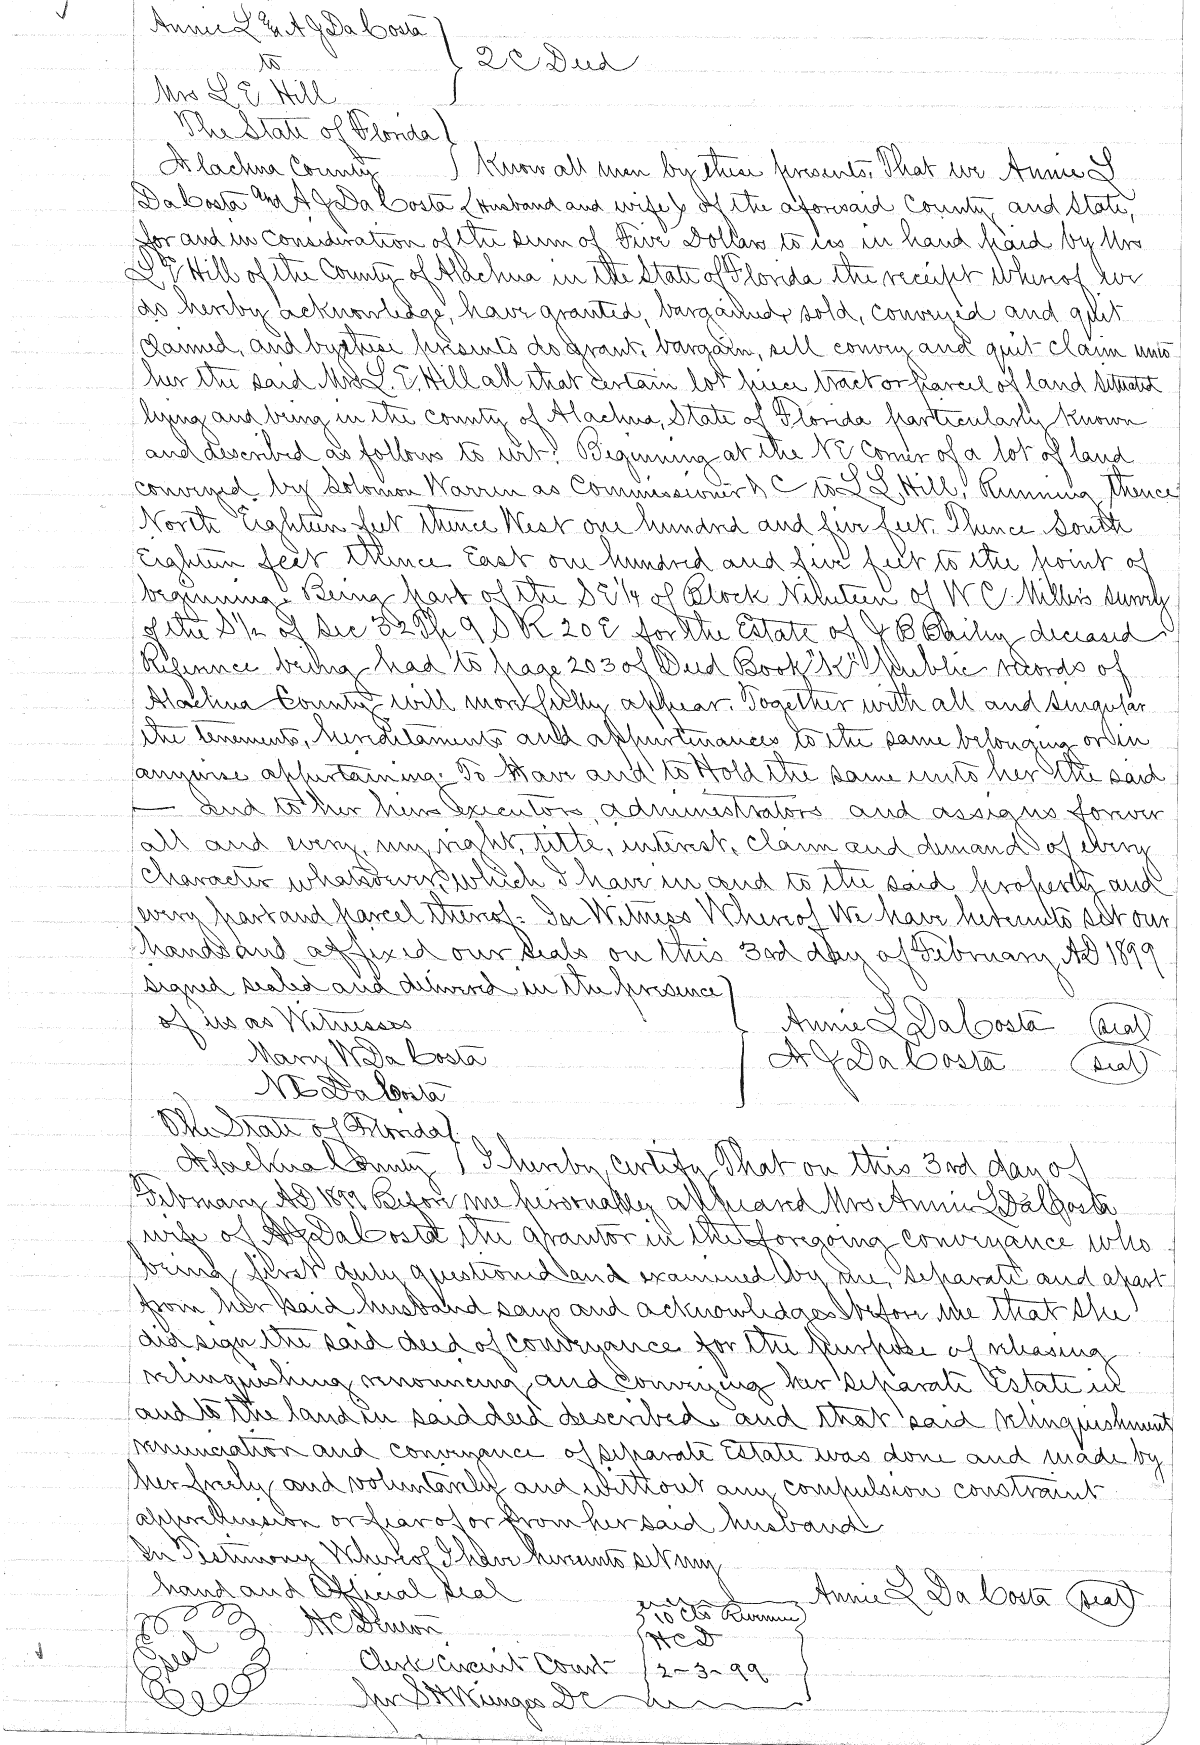 Annie L & A J Da Costa
to } 2 C Deed
Mrs L E Hill
The State of Florida }
Alachua County } Know all men by these presents, That we Annie L
DaCosta and A J DaCosta (Husband and wife) of the aforesaid County and State,
for and in consideration of the sum of Five Dollars to us in hand paid by Mrs
L E Hill of the County of Alachua in the State of Florida the receipt whereof we
do hereby acknowledge, have granted, bargained, sold, conveyed and quit
claimed, and by these presents do grant, bargain, sell convey and quit claim unto
her the said Mrs L E Hill all that certain lot piece tract or parcel of land situated
lying and being in the county of Alachua, State of Florida particularly known
and described as follows to wit: Beginning at the NE Corner of a lot of land
conveyed by Solomon Warren as Commissioner &C to L L Hill, Running thence
North Eighteen feet thence West one hundred and five feet. Thence South
Eighteen feet thence East one hundred and five feet to the point of
beginning. Being part of the SE 1/4 of Block Nineteen of W C. Miller's survey
of the S 1/2 of Sec 32 Tp 9 S R 20 E for the Estate of J B Bailey deceased
Reference being had to page 203 of Deed Book "K" public records of
Alachua County will more fully appear. Together with all and singular
the tenements, hereditaments and appurtenances to the same belonging or in
anywise appertaining. To Have and to Hold the same unto her the said
— and to her heirs executors, administrators and assigns forever
all and every, my right, title, interest, claim and demand of every
character whatsoever, which I have in and to the said property and
every part and parcel thereof. In Witness Whereof We have hereunto set our
hands and affixed our seals on this 3rd day of February AD 1899
signed sealed and delivered in the presence }
of us as Witnesses Annie L DaCosta (seal)
Mary W Da Costa A J DaCosta (seal)
N E Da Costa
The State of Florida }
Alachua County } I hereby certify That on this 3rd day of
February AD 1899 Before me personally appeared Mrs. Annie L DaCosta
wife of A J DaCosta the grantor in the foregoing conveyance who
being first duly questioned and examined by me, separate and apart
from her said husband says and acknowledges before me that she
did sign the said deed of conveyance for the purpose of releasing
relinquishing renouncing and conveying her separate Estate in
and to the land in said deed described and that said relinquishment
renunciation and conveyance of separate Estate was done and made by
her freely and voluntarily and without any compulsion constraint
apprehension or fear of or from her said husband
In Testimony Whereof I have hereunto set my
hand and Official seal Annie L Da Costa (seal)
Seal H C Denson 10 Cts Revenue
H C D
Clerk Circuit Court 2-3-99
per S H Wienges DC